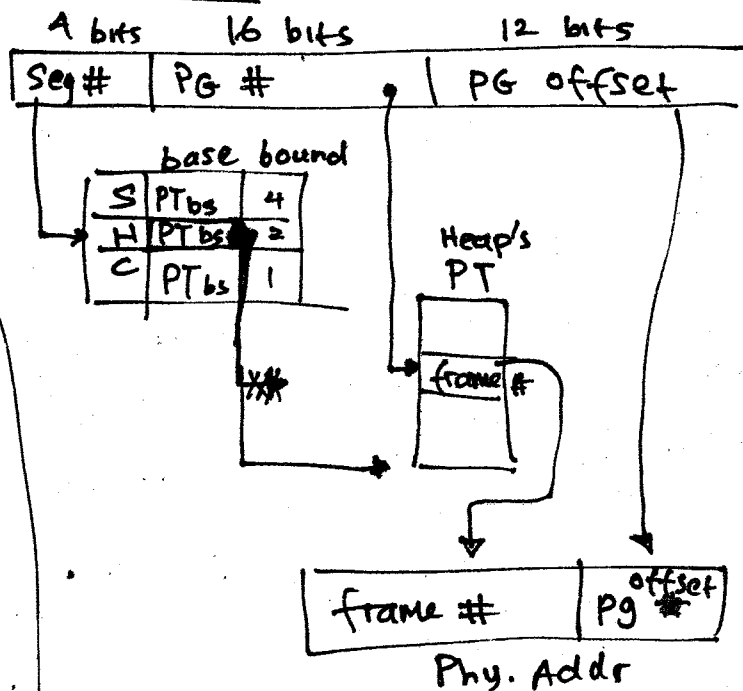 4 bits 16 bits 12 bits
Seg # PG # PG offset
base bound
S PTbs 4
H PTbs 2
C PTbs 1
Heap's
PT
frame #
frame # pg offset
Phy. Addr